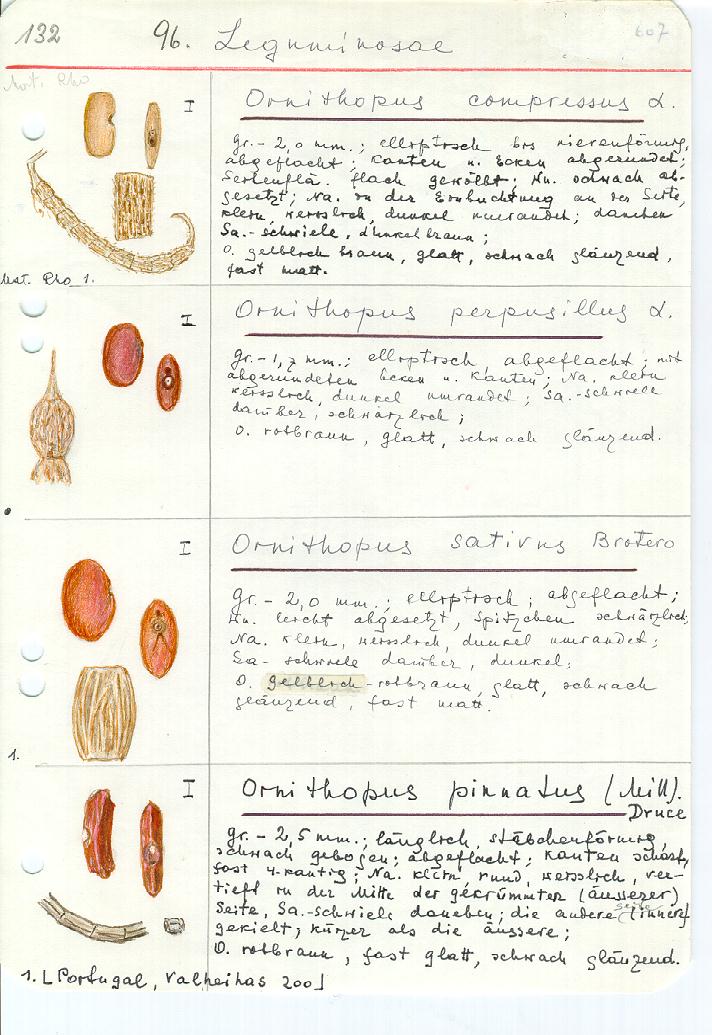 132 96. Leguminosae 607
Hort. Rho
I
Ornithopus compressus L.
gr. - 2,0 mm.; elliptisch bis nierenförmig,
abgeflacht; Kanten u. Ecken abgerundet;
Seitenflä. flach gewölbt; Hn. schwach ab-
gesetzt; Na. in der Einbuchtung an der Seite,
klein, weisslich, dunkel umrandet; daneben
Sa.-schwiele, dunkelbraun;
O. gelblich braun, glatt, schwach glänzend,
fast matt.
Nat. Rho 1.
I
Ornithopus perpusillus L.
gr. - 1,7 mm.; elliptisch abgeflacht; mit
abgerundeten Ecken u. Kanten; Na. klein
weisslich, dunkel umrandet; Sa.-schwiele
darüber, schwärzlich;
O. rotbraun, glatt, schwach glänzend.
I
Ornithopus sativus Brotero
gr. - 2,0 mm.; elliptisch; abgeflacht;
Hn. leicht abgesetzt, Spitzchen schwärzlich;
Na. klein, weisslich, dunkel umrandet;
Sa-schwiele darüber, dunkel;
O. gelblich-rotbraun, glatt, schwach
glänzend, fast matt.
1.
I
Ornithopus pinnatus (Mill).
Druce
gr. - 2,5 mm.; länglich, stäbchenförmig,
schwach gebogen; abgeflacht; Kanten scharf,
fast 4-kantig; Na. klein rund, weisslich, ver-
tieft in der Mitte der gekrümmten (äusserer)
Seite, Sa.-Schwiele daneben; die andere (innere)
Seite
gekielt; kürzer als die äussere;
O. rotbraun, fast glatt, schwach glänzend.
1. [Portugal, Valhelhas 200]